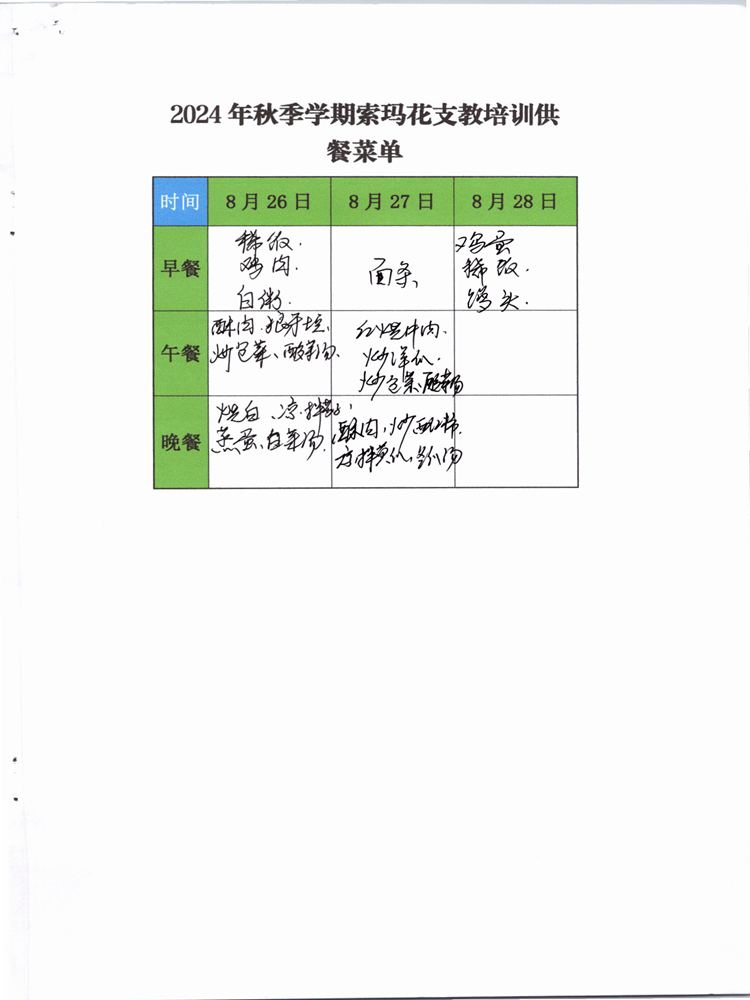 2024 年秋季学期索玛花支教培训供
餐菜单
时间 8 月 26 日 8 月 27 日 8 月 28 日
早餐
稀饭.
鸡肉.
白粥.
面条
鸡蛋
稀饭.
馒头.
午餐
酥肉.狼牙土豆.
炒包菜、酸菜汤.
红烧牛肉.
炒洋瓜.
炒包菜、酸菜汤
晚餐
烧白、凉拌
蒸蛋、白菜汤.
酥肉,炒
凉拌黄瓜,